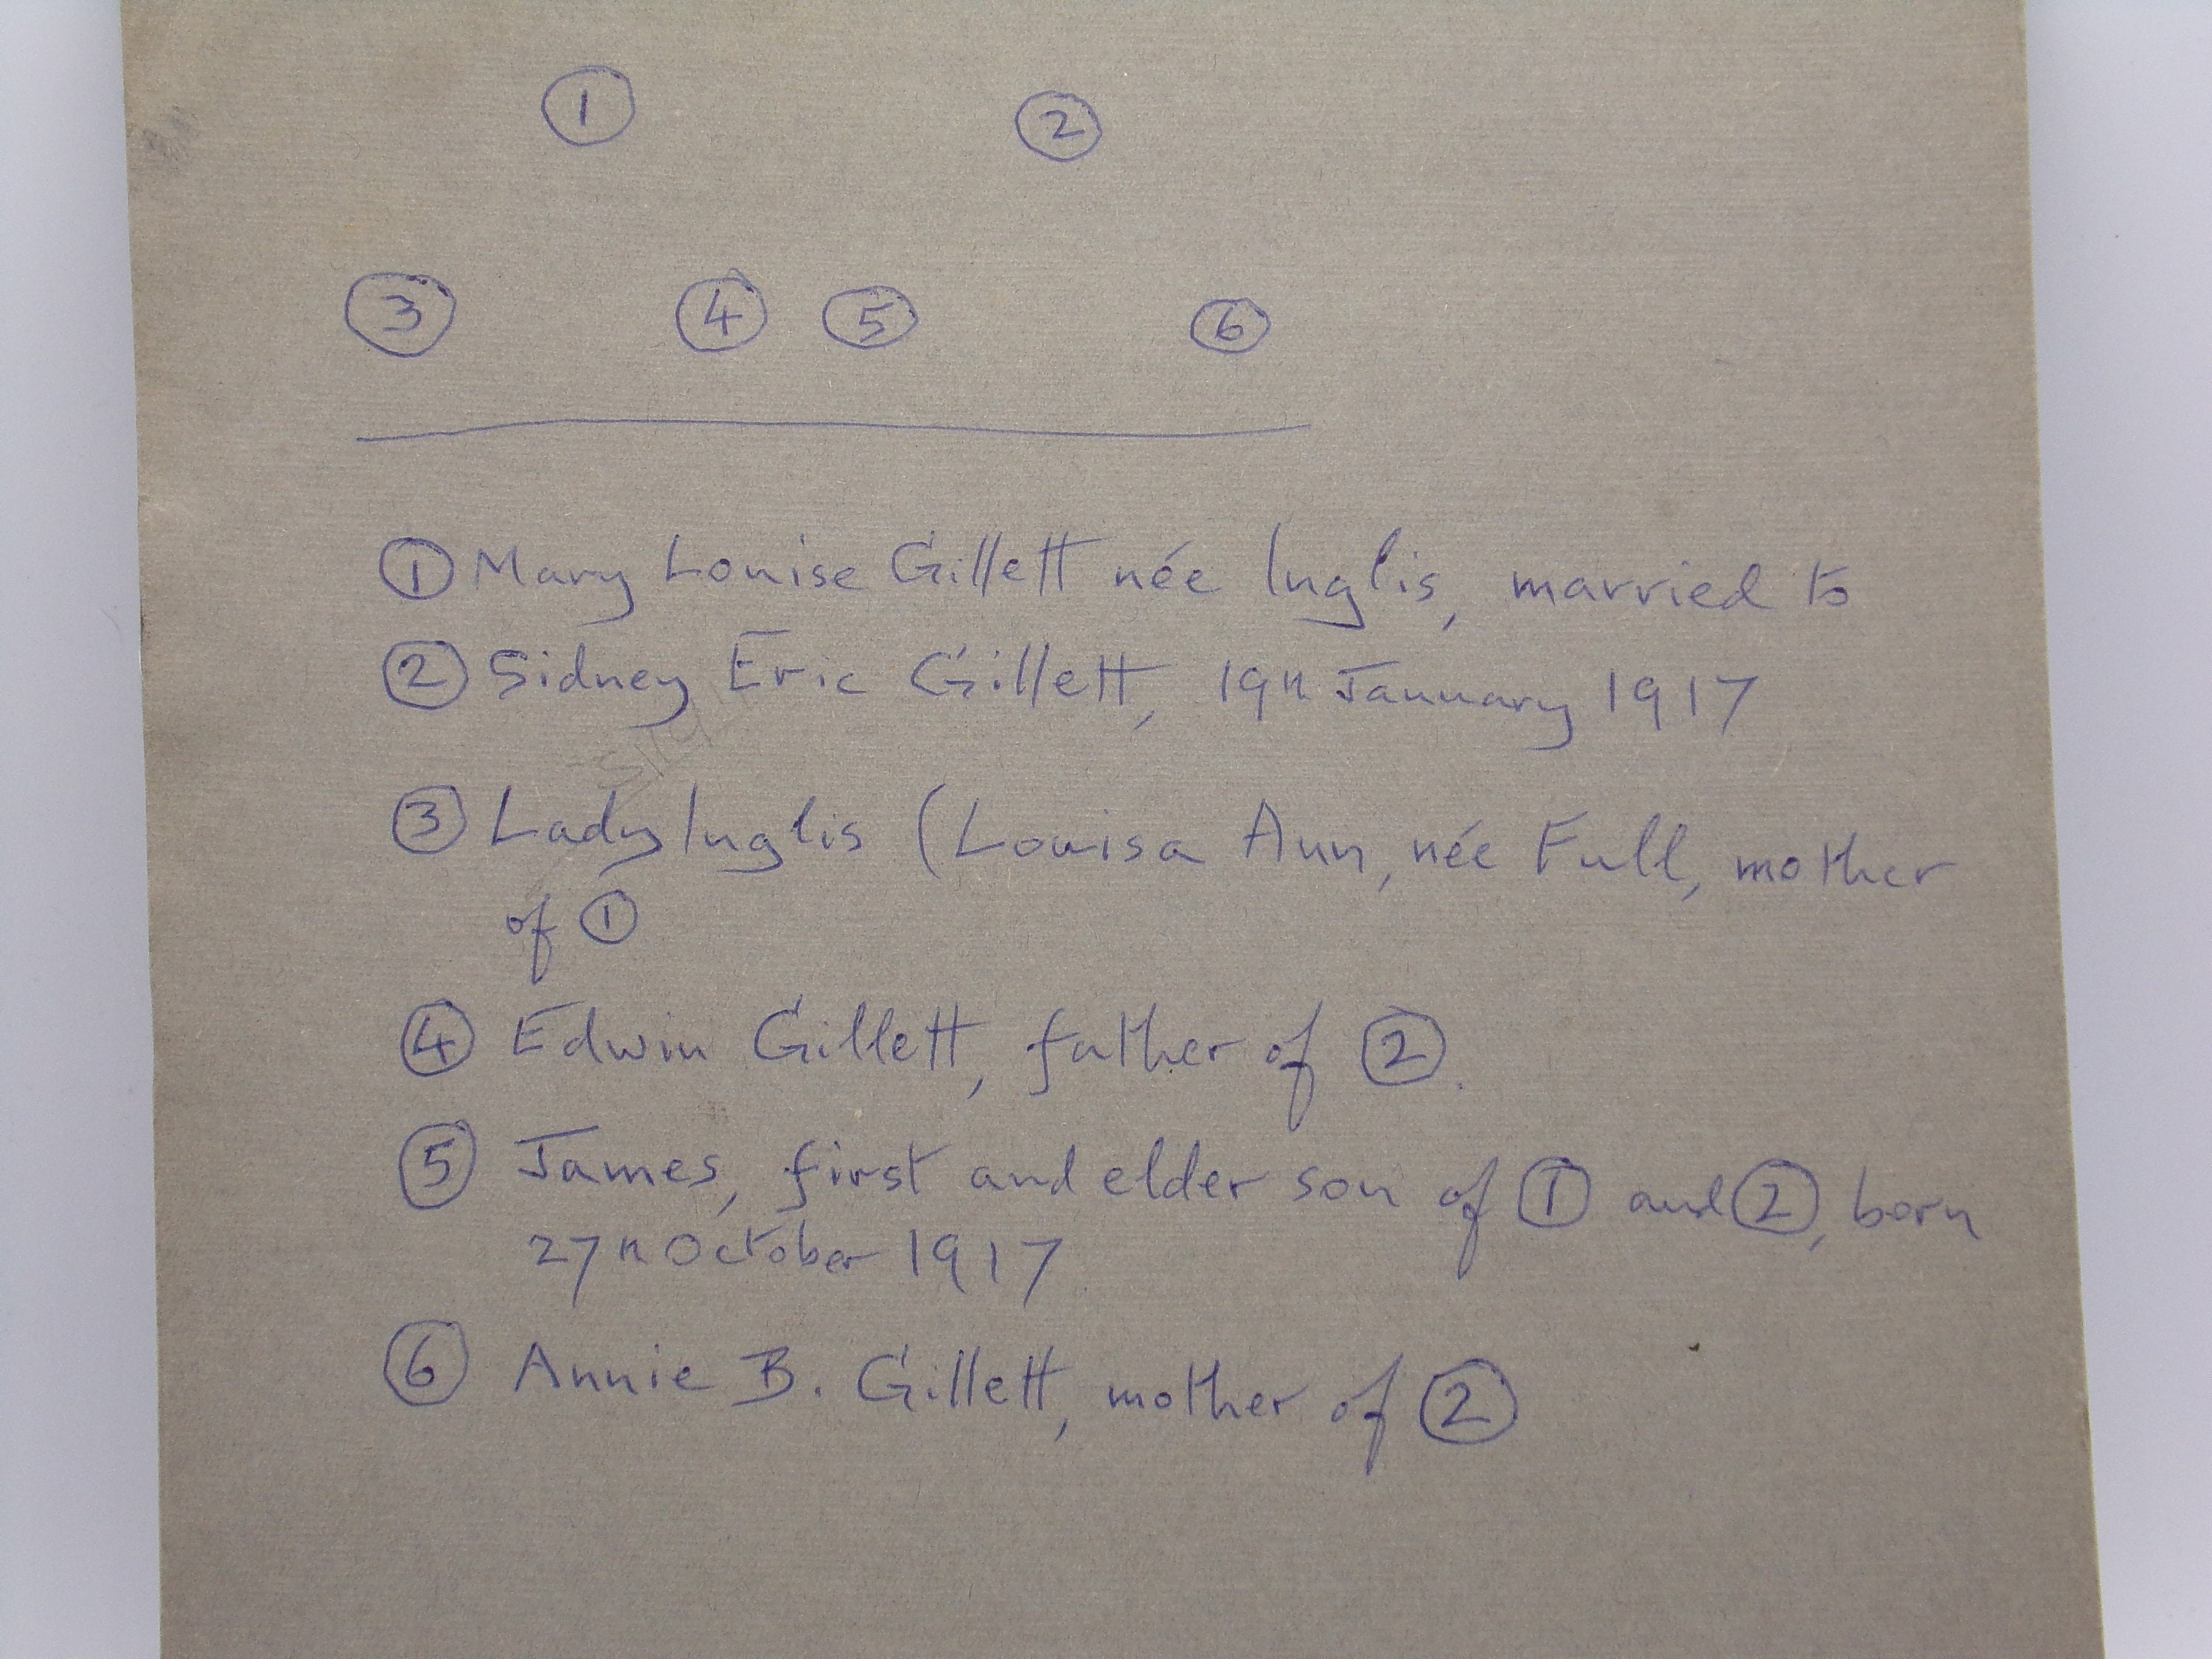 ① ②
③ ④ ⑤ ⑥
① Mary Louise Gillett née Inglis, married to
② Sidney Eric Gillett, 19th January 1917
③ Lady Inglis (Louisa Ann, née Full, mother
of ①
④ Edwin Gillett, father of ②.
⑤ James, first and elder son of ① and ②, born
27th October 1917
⑥ Annie B. Gillett, mother of ②